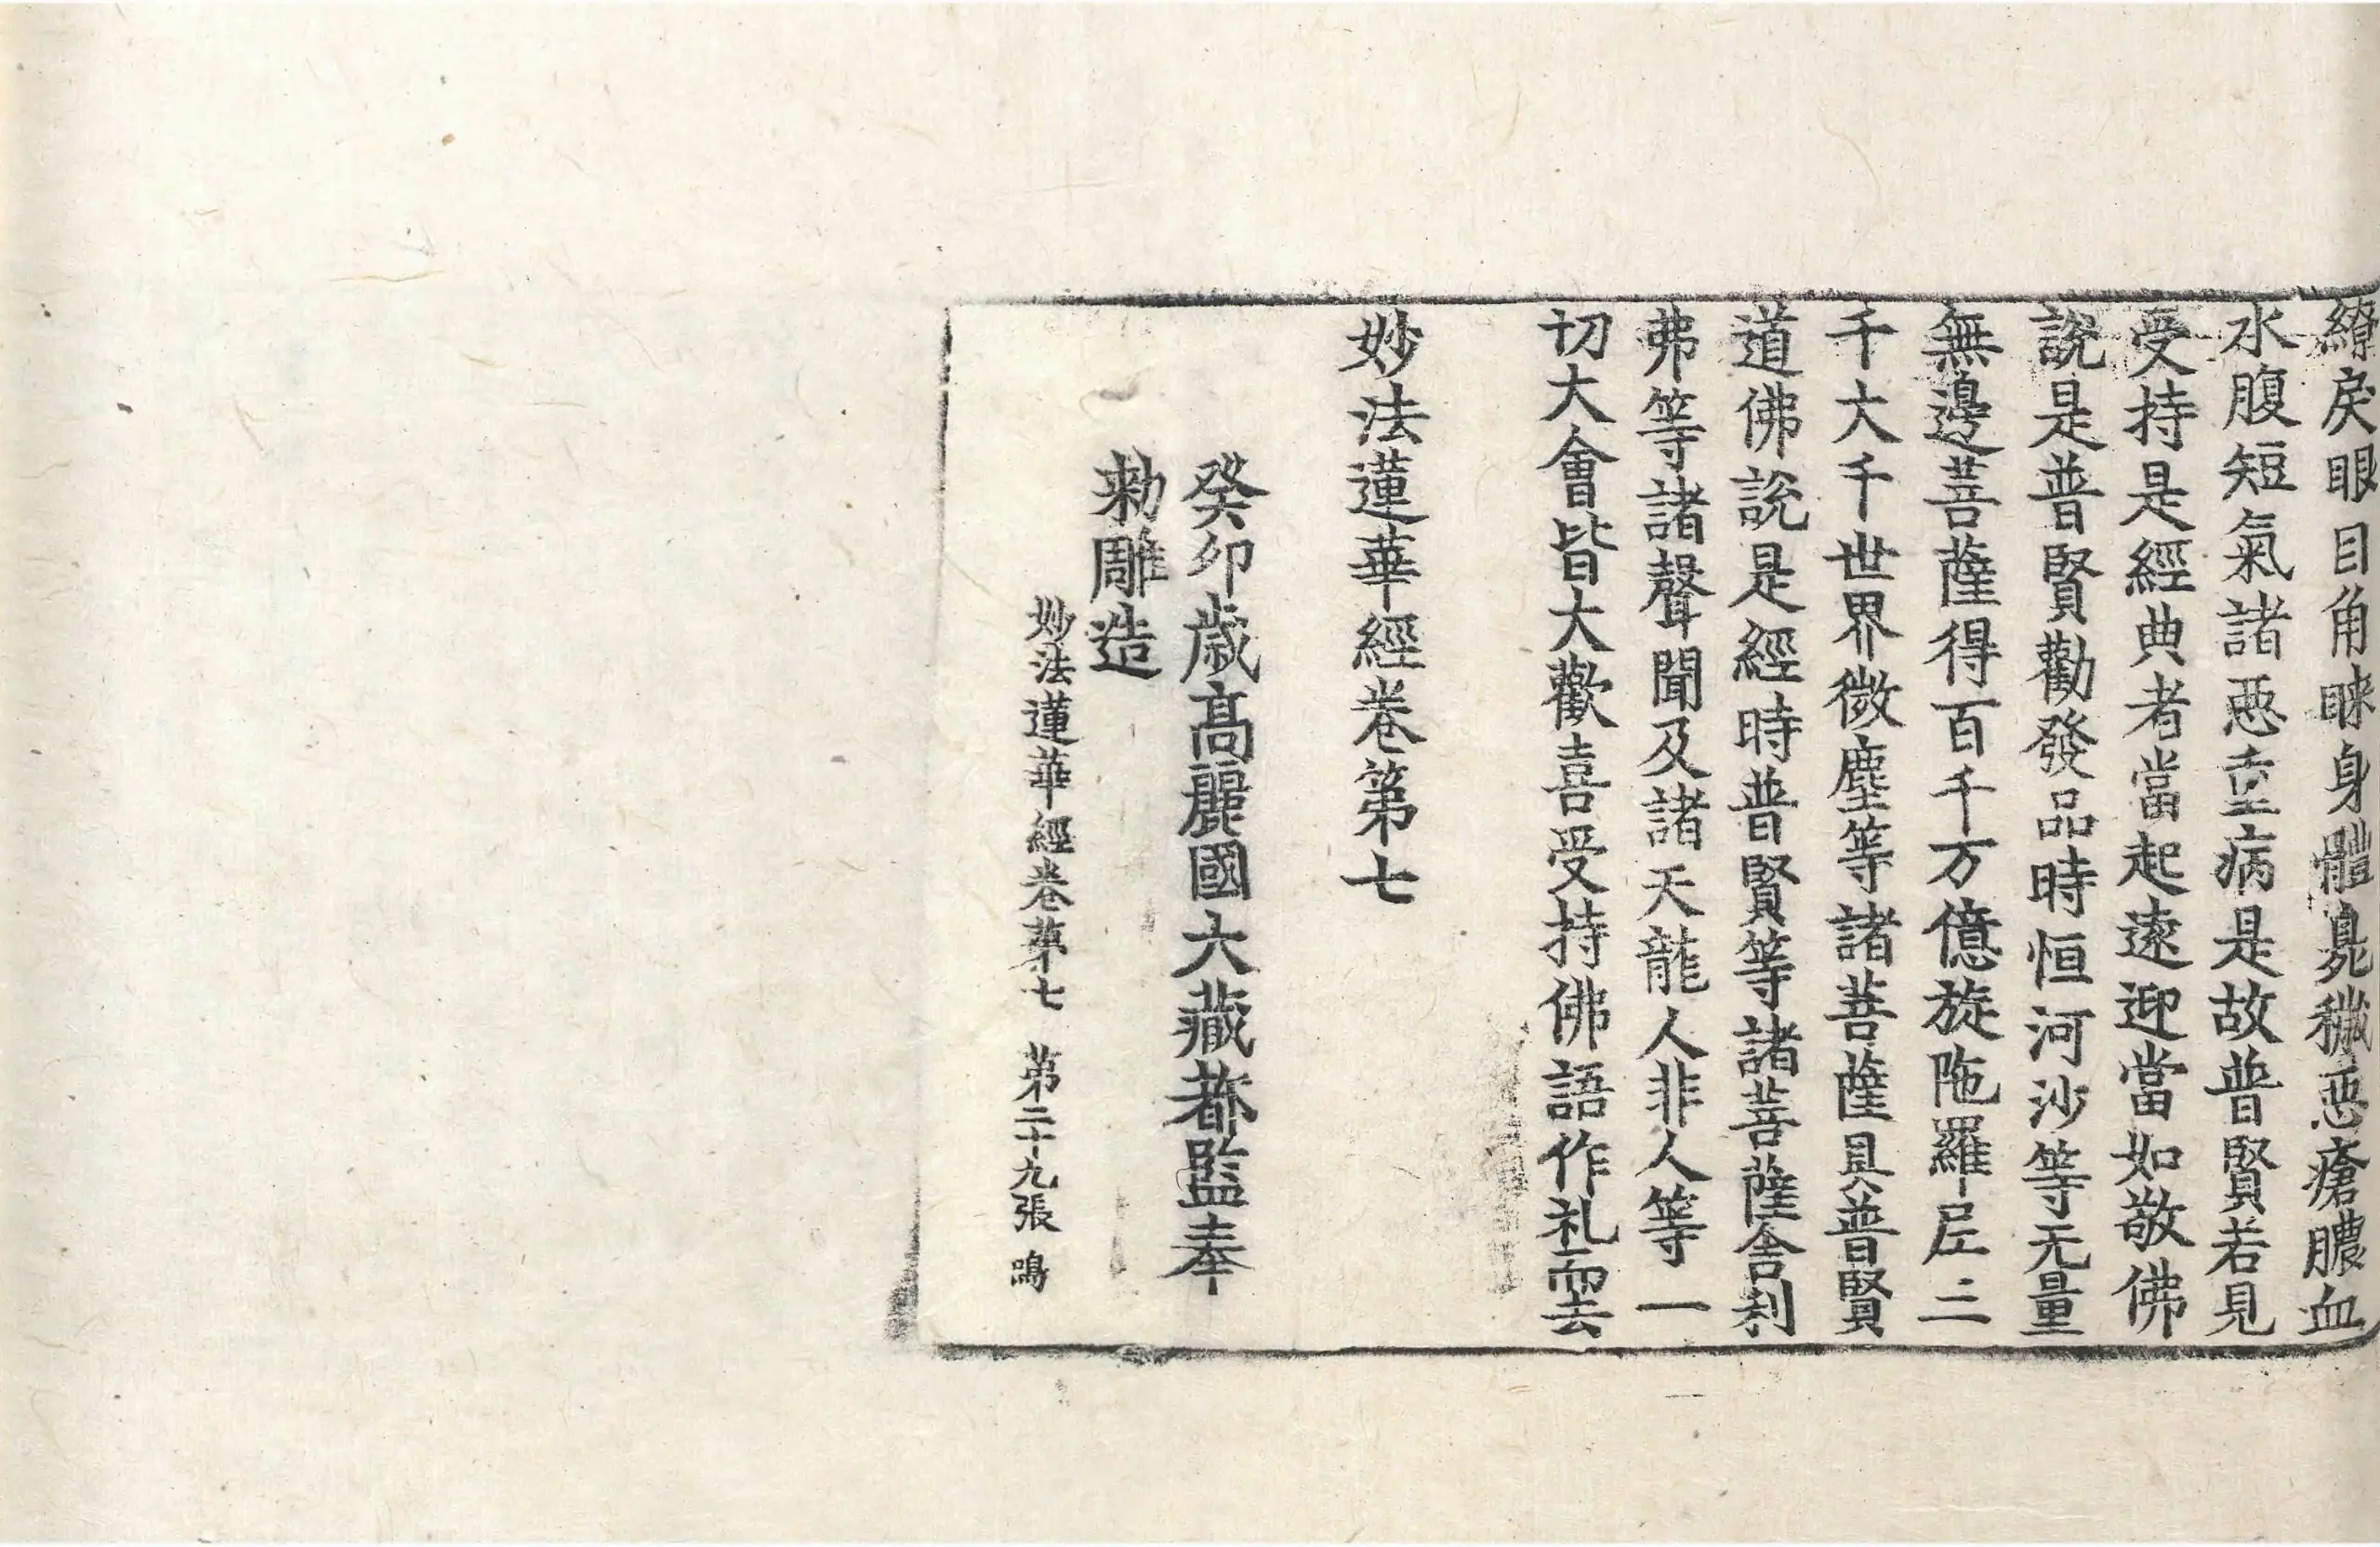 繚戾眼目角睞身體臰穢惡瘡膿血
水腹短氣諸惡重病是故普賢若見
受持是經典者當起遠迎當如敬佛
說是普賢勸發品時恒河沙等无量
無邊菩薩得百千万億旋陁羅尼三
千大千世界微塵等諸菩薩具普賢
道佛說是經時普賢等諸菩薩舍利
弗等諸聲聞及諸天龍人非人等一
切大會皆大歡喜受持佛語作礼而去
妙法蓮華經卷第七
癸卯歲高麗國大藏都監奉
勑雕造
妙法蓮華經卷第七 第二十九張 鳴